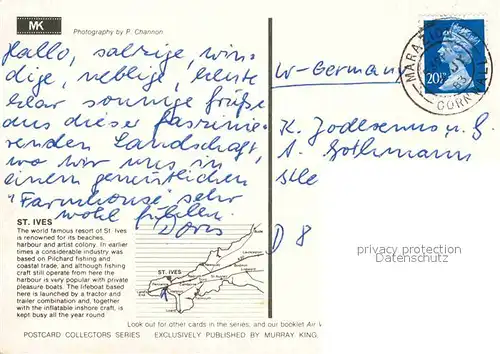 MK
Photography by P. Channon
Hallo, salzige, win-
dige, neblige, heute
klar sonnige Grüße
aus dieser faszinie-
renden Landschaft,
wo wir uns in
einem gemütlichen
"Farmhouse" sehr
wohl fühlen.
Doris
W-Germany
K.
D 8
20½P
MARAZION
CORNWALL
ST. IVES
The world famous resort of St. Ives
is renowned for its beaches,
harbour and artist colony. In earlier
times a considerable industry was
based on Pilchard fishing and
coastal trade, and although fishing
craft still operate from here the
harbour is very popular with private
pleasure boats. The lifeboat based
here is launched by a tractor and
trailer combination and, together
with the inflatable inshore craft, is
kept busy all the year round
ST. IVES
privacy protection
Datenschutz
Look out for other cards in the series, and our booklet
POSTCARD COLLECTORS SERIES EXCLUSIVELY PUBLISHED BY MURRAY KING,